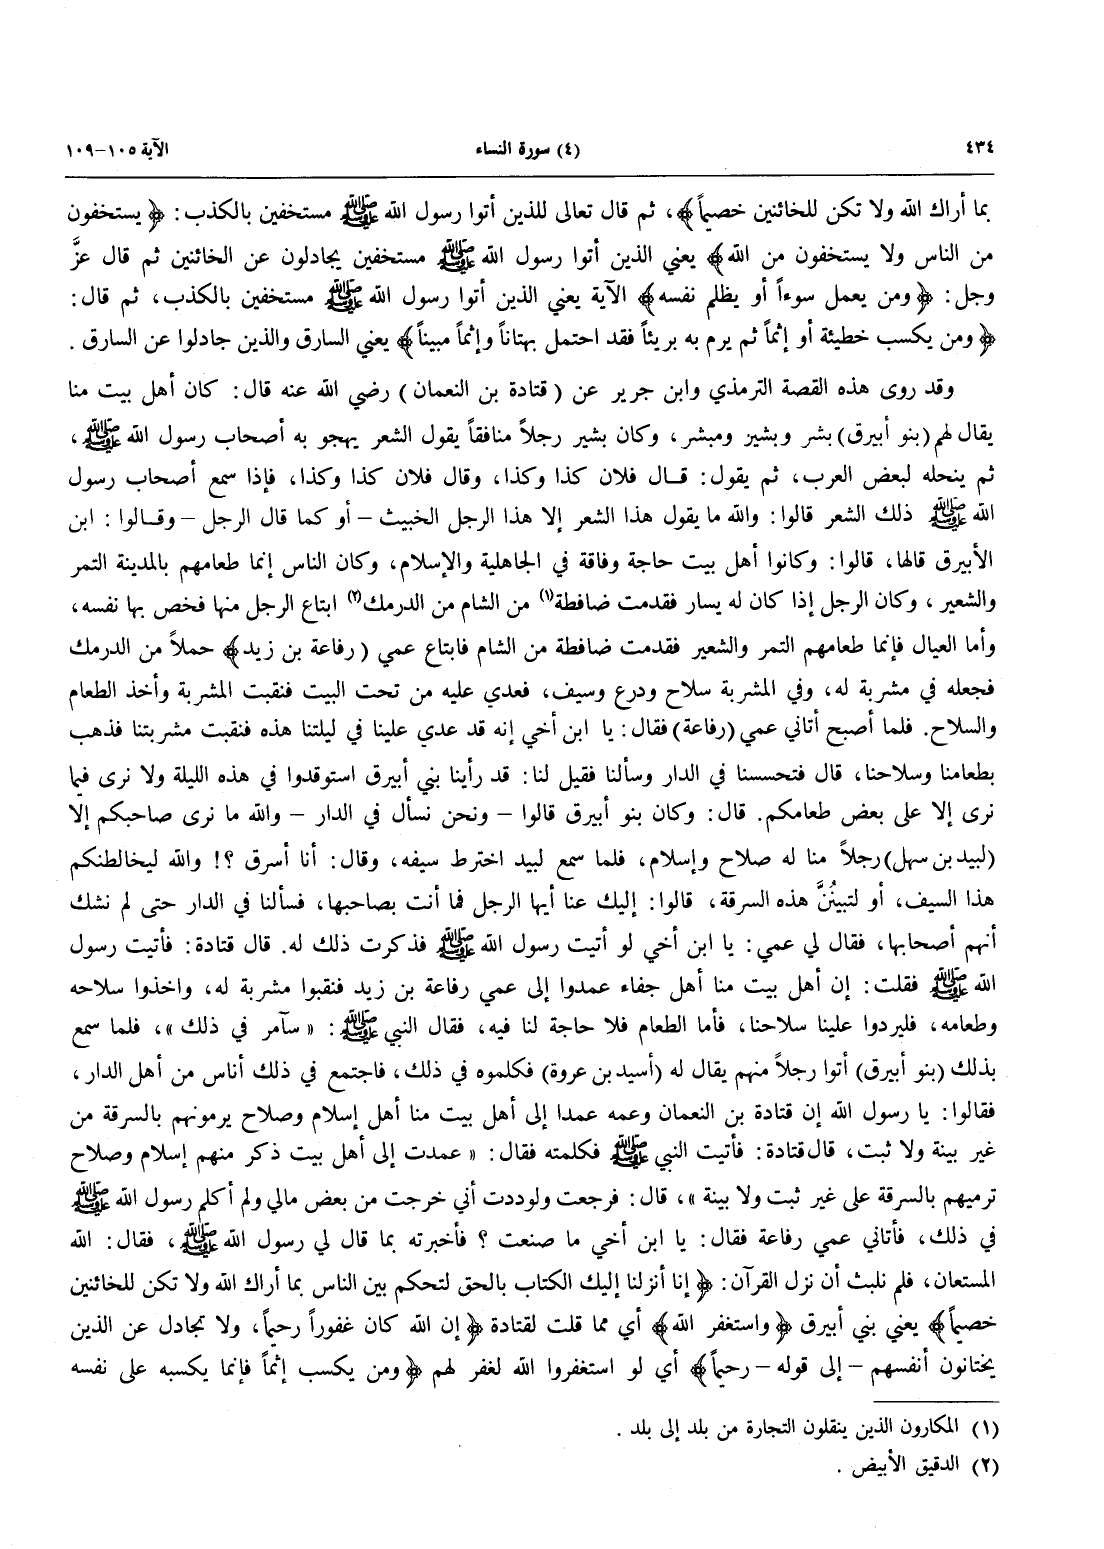 ٤٣٤ (٤) سورة النساء الآية ١٠٥-١٠٩
بما أراك الله ولا تكن للخائنين خصيماً﴾، ثم قال تعالى للذين أتوا رسول الله ﷺ مستخفين بالكذب: ﴿يستخفون
من الناس ولا يستخفون من الله﴾ يعني الذين أتوا رسول الله ﷺ مستخفين يجادلون عن الخائنين ثم قال عزَّ
وجل: ﴿ومن يعمل سوءاً أو يظلم نفسه﴾ الآية يعني الذين أتوا رسول الله ﷺ مستخفين بالكذب، ثم قال:
﴿ومن يكسب خطيئة أو إثماً ثم يرم به بريئاً فقد احتمل بهتاناً وإثماً مبيناً﴾ يعني السارق والذين جادلوا عن السارق.
وقد روى هذه القصة الترمذي وابن جرير عن (قتادة بن النعمان) رضي الله عنه قال: كان أهل بيت منا
يقال لهم (بنو أبيرق) بشر وبشير ومبشر، وكان بشير رجلاً منافقاً يقول الشعر يهجو به أصحاب رسول الله ﷺ،
ثم ينحله لبعض العرب، ثم يقول: قال فلان كذا وكذا، وقال فلان كذا وكذا، فإذا سمع أصحاب رسول
الله ﷺ ذلك الشعر قالوا: والله ما يقول هذا الشعر إلا هذا الرجل الخبيث – أو كما قال الرجل – وقالوا: ابن
الأبيرق قالها، قالوا: وكانوا أهل بيت حاجة وفاقة في الجاهلية والإسلام، وكان الناس إنما طعامهم بالمدينة التمر
والشعير، وكان الرجل إذا كان له يسار فقدمت ضافطة(١) من الشام من الدرمك(٢) ابتاع الرجل منها فخص بها نفسه،
وأما العيال فإنما طعامهم التمر والشعير فقدمت ضافطة من الشام فابتاع عمي (رفاعة بن زيد﴾ حملاً من الدرمك
فجعله في مشربة له، وفي المشربة سلاح ودرع وسيف، فعدي عليه من تحت البيت فنقبت المشربة وأخذ الطعام
والسلاح. فلما أصبح أتاني عمي (رفاعة) فقال: يا ابن أخي إنه قد عدي علينا في ليلتنا هذه فنقبت مشربتنا فذهب
بطعامنا وسلاحنا، قال فتحسسنا في الدار وسألنا فقيل لنا: قد رأينا بني أبيرق استوقدوا في هذه الليلة ولا نرى فيما
نرى إلا على بعض طعامكم. قال: وكان بنو أبيرق قالوا – ونحن نسأل في الدار – والله ما نرى صاحبكم إلا
(لبيد بن سهل) رجلاً منا له صلاح وإسلام، فلما سمع لبيد اخترط سيفه، وقال: أنا أسرق؟! والله ليخالطنكم
هذا السيف، أو لتبينُنَّ هذه السرقة، قالوا: إليك عنا أيها الرجل فما أنت بصاحبها، فسألنا في الدار حتى لم نشك
أنهم أصحابها، فقال لي عمي: يا ابن أخي لو أتيت رسول الله ﷺ فذكرت ذلك له. قال قتادة: فأتيت رسول
الله ﷺ فقلت: إن أهل بيت منا أهل جفاء عمدوا إلى عمي رفاعة بن زيد فنقبوا مشربة له، واخذوا سلاحه
وطعامه، فليردوا علينا سلاحنا، فأما الطعام فلا حاجة لنا فيه، فقال النبي ﷺ: «سآمر في ذلك»، فلما سمع
بذلك (بنو أبيرق) أتوا رجلاً منهم يقال له (أسيد بن عروة) فكلموه في ذلك، فاجتمع في ذلك أناس من أهل الدار،
فقالوا: يا رسول الله إن قتادة بن النعمان وعمه عمدا إلى أهل بيت منا أهل إسلام وصلاح يرمونهم بالسرقة من
غير بينة ولا ثبت، قال قتادة: فأتيت النبي ﷺ فكلمته فقال: «عمدت إلى أهل بيت ذكر منهم إسلام وصلاح
ترميهم بالسرقة على غير ثبت ولا بينة»، قال: فرجعت ولوددت أني خرجت من بعض مالي ولم أكلم رسول الله ﷺ
في ذلك، فأتاني عمي رفاعة فقال: يا ابن أخي ما صنعت؟ فأخبرته بما قال لي رسول الله ﷺ، فقال: الله
المستعان، فلم نلبث أن نزل القرآن: ﴿إنا أنزلنا إليك الكتاب بالحق لتحكم بين الناس بما أراك الله ولا تكن للخائنين
خصيماً﴾ يعني بني أبيرق ﴿واستغفر الله﴾ أي مما قلت لقتادة ﴿إن الله كان غفوراً رحيماً، ولا تجادل عن الذين
يختانون أنفسهم – إلى قوله – رحيماً﴾ أي لو استغفروا الله لغفر لهم ﴿ومن يكسب إثماً فإنما يكسبه على نفسه
(١) المكارون الذين ينقلون التجارة من بلد إلى بلد.
(٢) الدقيق الأبيض.